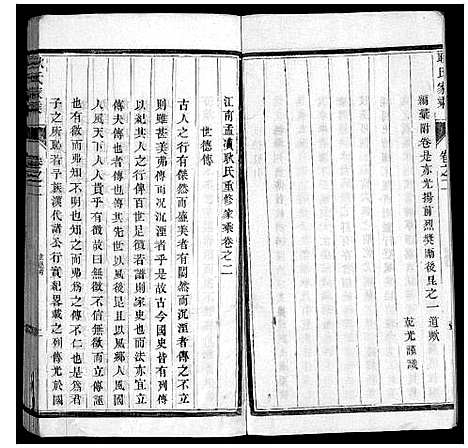 耿氏家乘
卷之二
爾葉附卷是亦光揚前烈奬勵後昆之一道歟
乾光謹識
江南孟瀆耿氏重修家乘卷之二
世德傳
古人之行有傑然而盛美者有闇然而沉湮者傳之不立
則雖甚美弗傳而况沉湮者乎是故古今國史皆有列傳
以紀其人之行傳百世足徵若譜則家史也而法亦宜立
傳夫傳也者其世德也其世以風後昆且以風鄉人風國
人風天下人人貴乎有徵故曰無徵而立傳誣
也有徵而弗知不明也知之而弗傳不仁也是爲君
子之所恥若子族漢代諸公行實紀畧載之列傳光於國